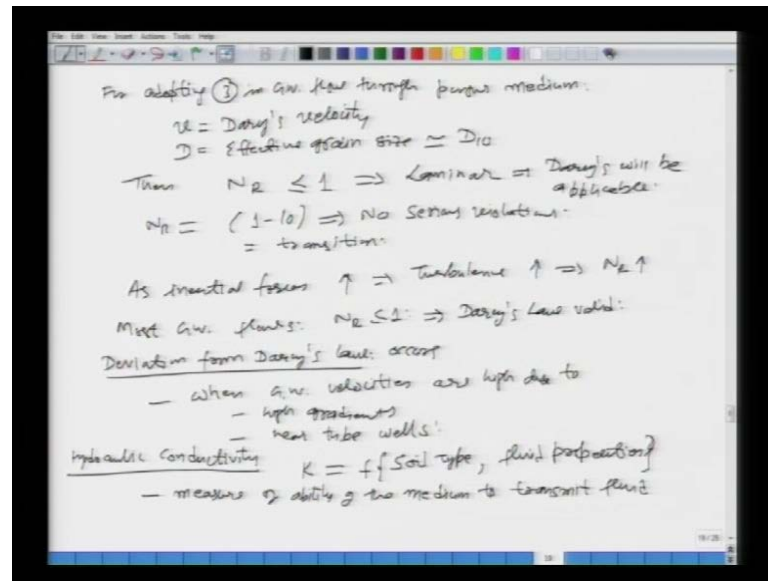 File Edit View Insert Actions Tools Help
For adopting (3) in G.w. flow through porous medium:
v = Darcy's velocity
D = Effective grain size ≃ D10
Then NR ≤ 1 ⇒ Laminar ⇒ Darcy's will be
applicable.
NR = (1-10) ⇒ No serious violations.
= transition.
As inertial forces ↑ ⇒ Turbulence ↑ ⇒ NR ↑
Most G.w. flows: NR ≤ 1: ⇒ Darcy's Law valid:
Deviation from Darcy's law: occurs
— when G.w. velocities are high due to
— high gradients
— near tube wells:
Hydraulic Conductivity K = f{Soil type, fluid properties}
— measure of ability of the medium to transmit fluid